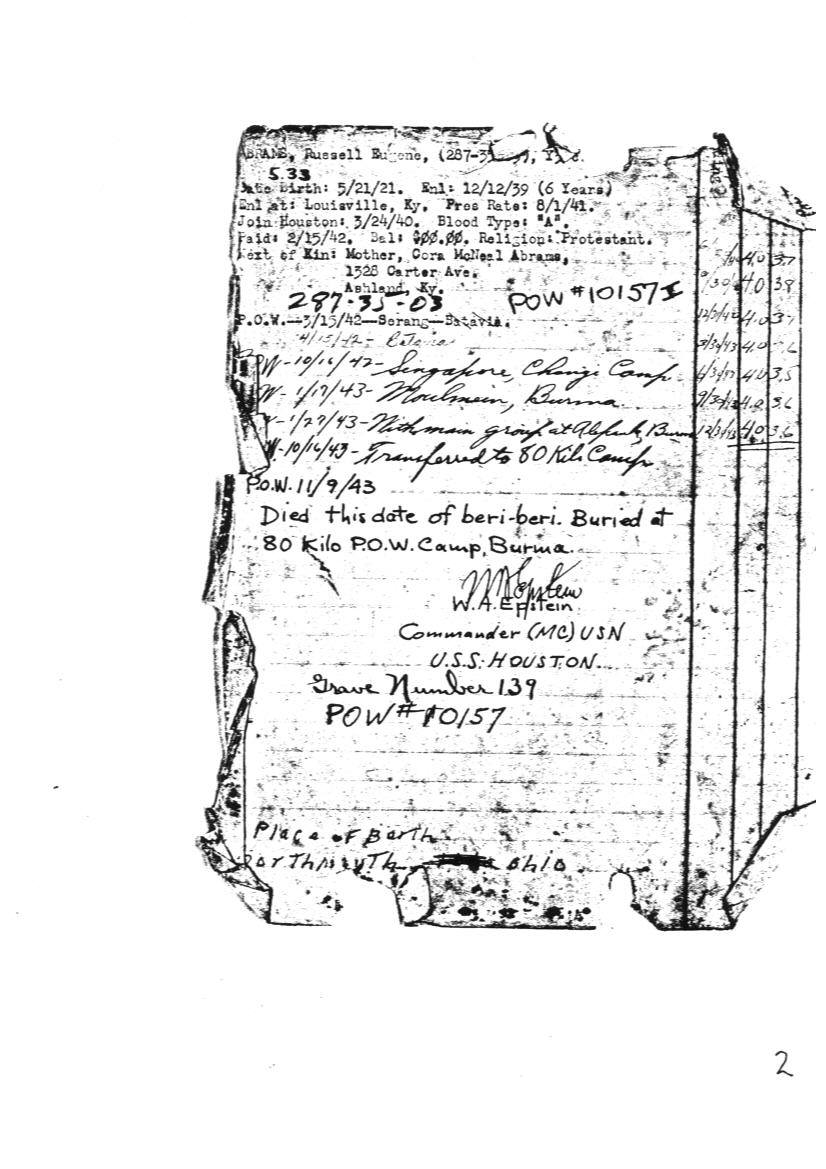 ABRAMS, Russell Eugene, (287-3
5.33
Date Birth: 5/21/21. Enl: 12/12/39 (6 Years)
Enl at: Louisville, Ky. Pres Rate: 8/1/41.
Join Houston: 3/24/40. Blood Type: "A".
Paid: 2/15/42. Bal: $00.00. Religion: Protestant.
Next of Kin: Mother, Cora McNeal Abrams,
1328 Carter Ave.
Ashland, Ky.
287-35-03 POW #10157
P.O.W.--3/15/42--Serang--Batavia.
4/15/42- Batavia
POW-10/16/42-Singapore, Changi Camp 4.0 3.5
W-1/17/43-Moulmein, Burma 4.0 3.6
W-1/27/43-With main group at Alepauk, Burma 4.0 3.6
W-10/16/43-Transferred to 80 Kilo Camp
P.O.W. 11/9/43
Died this date of beri-beri. Buried at
80 Kilo P.O.W. Camp, Burma.
WAEpstein
W.A. Epstein
Commander (MC) USN
U.S.S. HOUSTON
Grave Number 139
POW# 10157
Place of Barth
Ohio
2